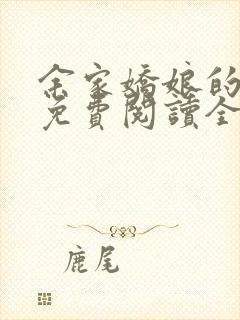 余家嬌娘的
免費閱讀全
鹿尾